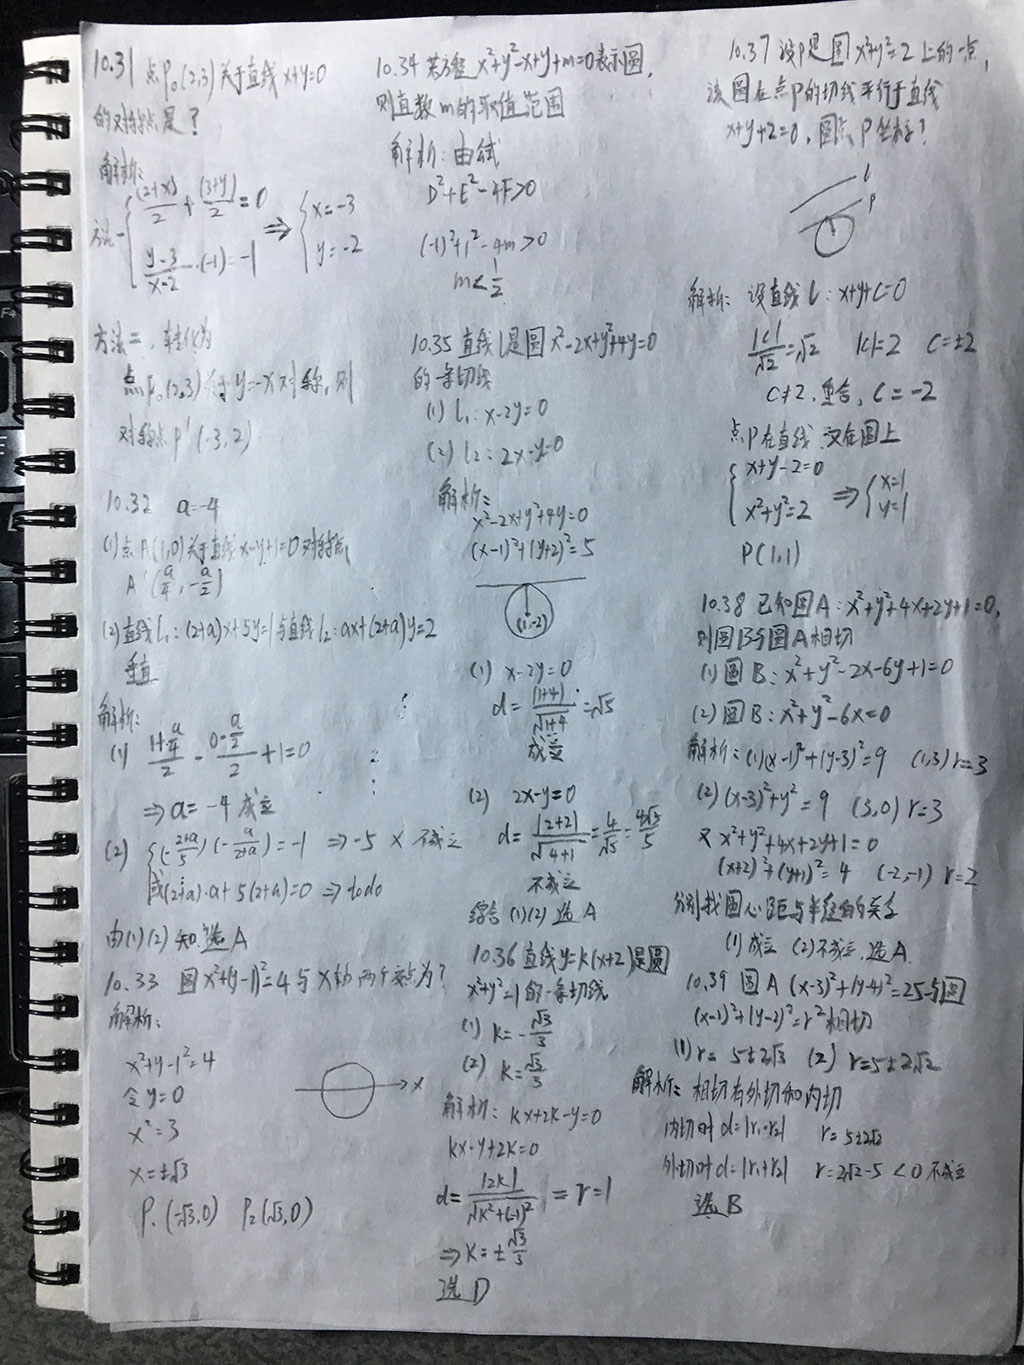 10.31 点P₀(2,3)关于直线x+y=0
的对称点是?
解析:
方法一 { (2+x)/2 + (3+y)/2 = 0
(y-3)/(x-2)·(-1)=-1 ⇒ { x=-3
y=-2
方法二,转化为
点P₀(2,3)关于y=-x对称,则
对称点P'(-3,2)
10.32 a=-4
(1)点A(1,0)关于直线x-y+1=0对称点
A'(a/4, -a/2)
(2)直线l₁:(2+a)x+5y=1与直线l₂:ax+(2+a)y=2
垂直
解析:
(1) (1+a/4)/2 - (0-a/2)/2 +1=0
⇒a=-4 成立
(2) { (-(2+a)/5)(-a/(2+a))=-1 ⇒ -5 × 不成立
或(2+a)·a+5(2+a)=0 ⇒ todo
由(1)(2)知.选A
10.33 圆x²+(y-1)²=4与x轴两个交点为?
解析:
x²+y-1²=4
令y=0
x²=3
x=±√3
P₁(-√3,0) P₂(√3,0)
x
10.34 若方程x²+y²-x+y+m=0表示圆,
则直数m的取值范围
解析:由
D²+E²-4F>0
(-1)²+1²-4m>0
m<1/2
10.35 直线l是圆x²-2x+y²+4y=0
的一条切线
(1) l₁:x-2y=0
(2) l₂:2x-y=0
解析:
x²-2x+y²+4y=0
(x-1)²+(y+2)²=5
(1,-2)
(1) x-2y=0
d=|1+4|/√(1+4)=√5
成立
(2) 2x-y=0
d=|2+2|/√(4+1)=4/√5=4√5/5
不成立
综合(1)(2)选A
10.36 直线y=k(x+2)是圆
x²+y²=1的一条切线
(1) k=-√3/3
(2) k=√3/3
解析:kx+2k-y=0
kx-y+2k=0
d=|2k|/√(k²+(-1)²)=r=1
⇒k=±√3/3
选D
10.37 设P是圆x²+y²=2上的一点,
该圆在点P的切线平行于直线
x+y+2=0,圆点P坐标?
l
P
解析:设直线l:x+y+c=0
|c|/√2=√2 |c|=2 c=±2
c≠2,重合,c=-2
点P在直线又在圆上
{ x+y-2=0
x²+y²=2 ⇒ { x=1
y=1
P(1,1)
10.38 已知圆A:x²+y²+4x+2y+1=0,
则圆B与圆A相切
(1)圆B:x²+y²-2x-6y+1=0
(2)圆B:x²+y²-6x=0
解析:(1)(x-1)²+(y-3)²=9 (1,3) r=3
(2)(x-3)²+y²=9 (3,0) r=3
又x²+y²+4x+2y+1=0
(x+2)²+(y+1)²=4 (-2,-1) r=2
分别找圆心距与半径的关系
(1)成立 (2)不成立,选A.
10.39 圆A (x-3)²+(y-4)²=25与圆
(x-1)²+(y-2)²=r²相切
(1)r=5±2√3 (2) r=5±2√2
解析:相切有外切和内切
内切时d=|r₁-r₂| r=5±2√2
外切时d=|r₁+r₂| r=2√2-5<0不成立
选B